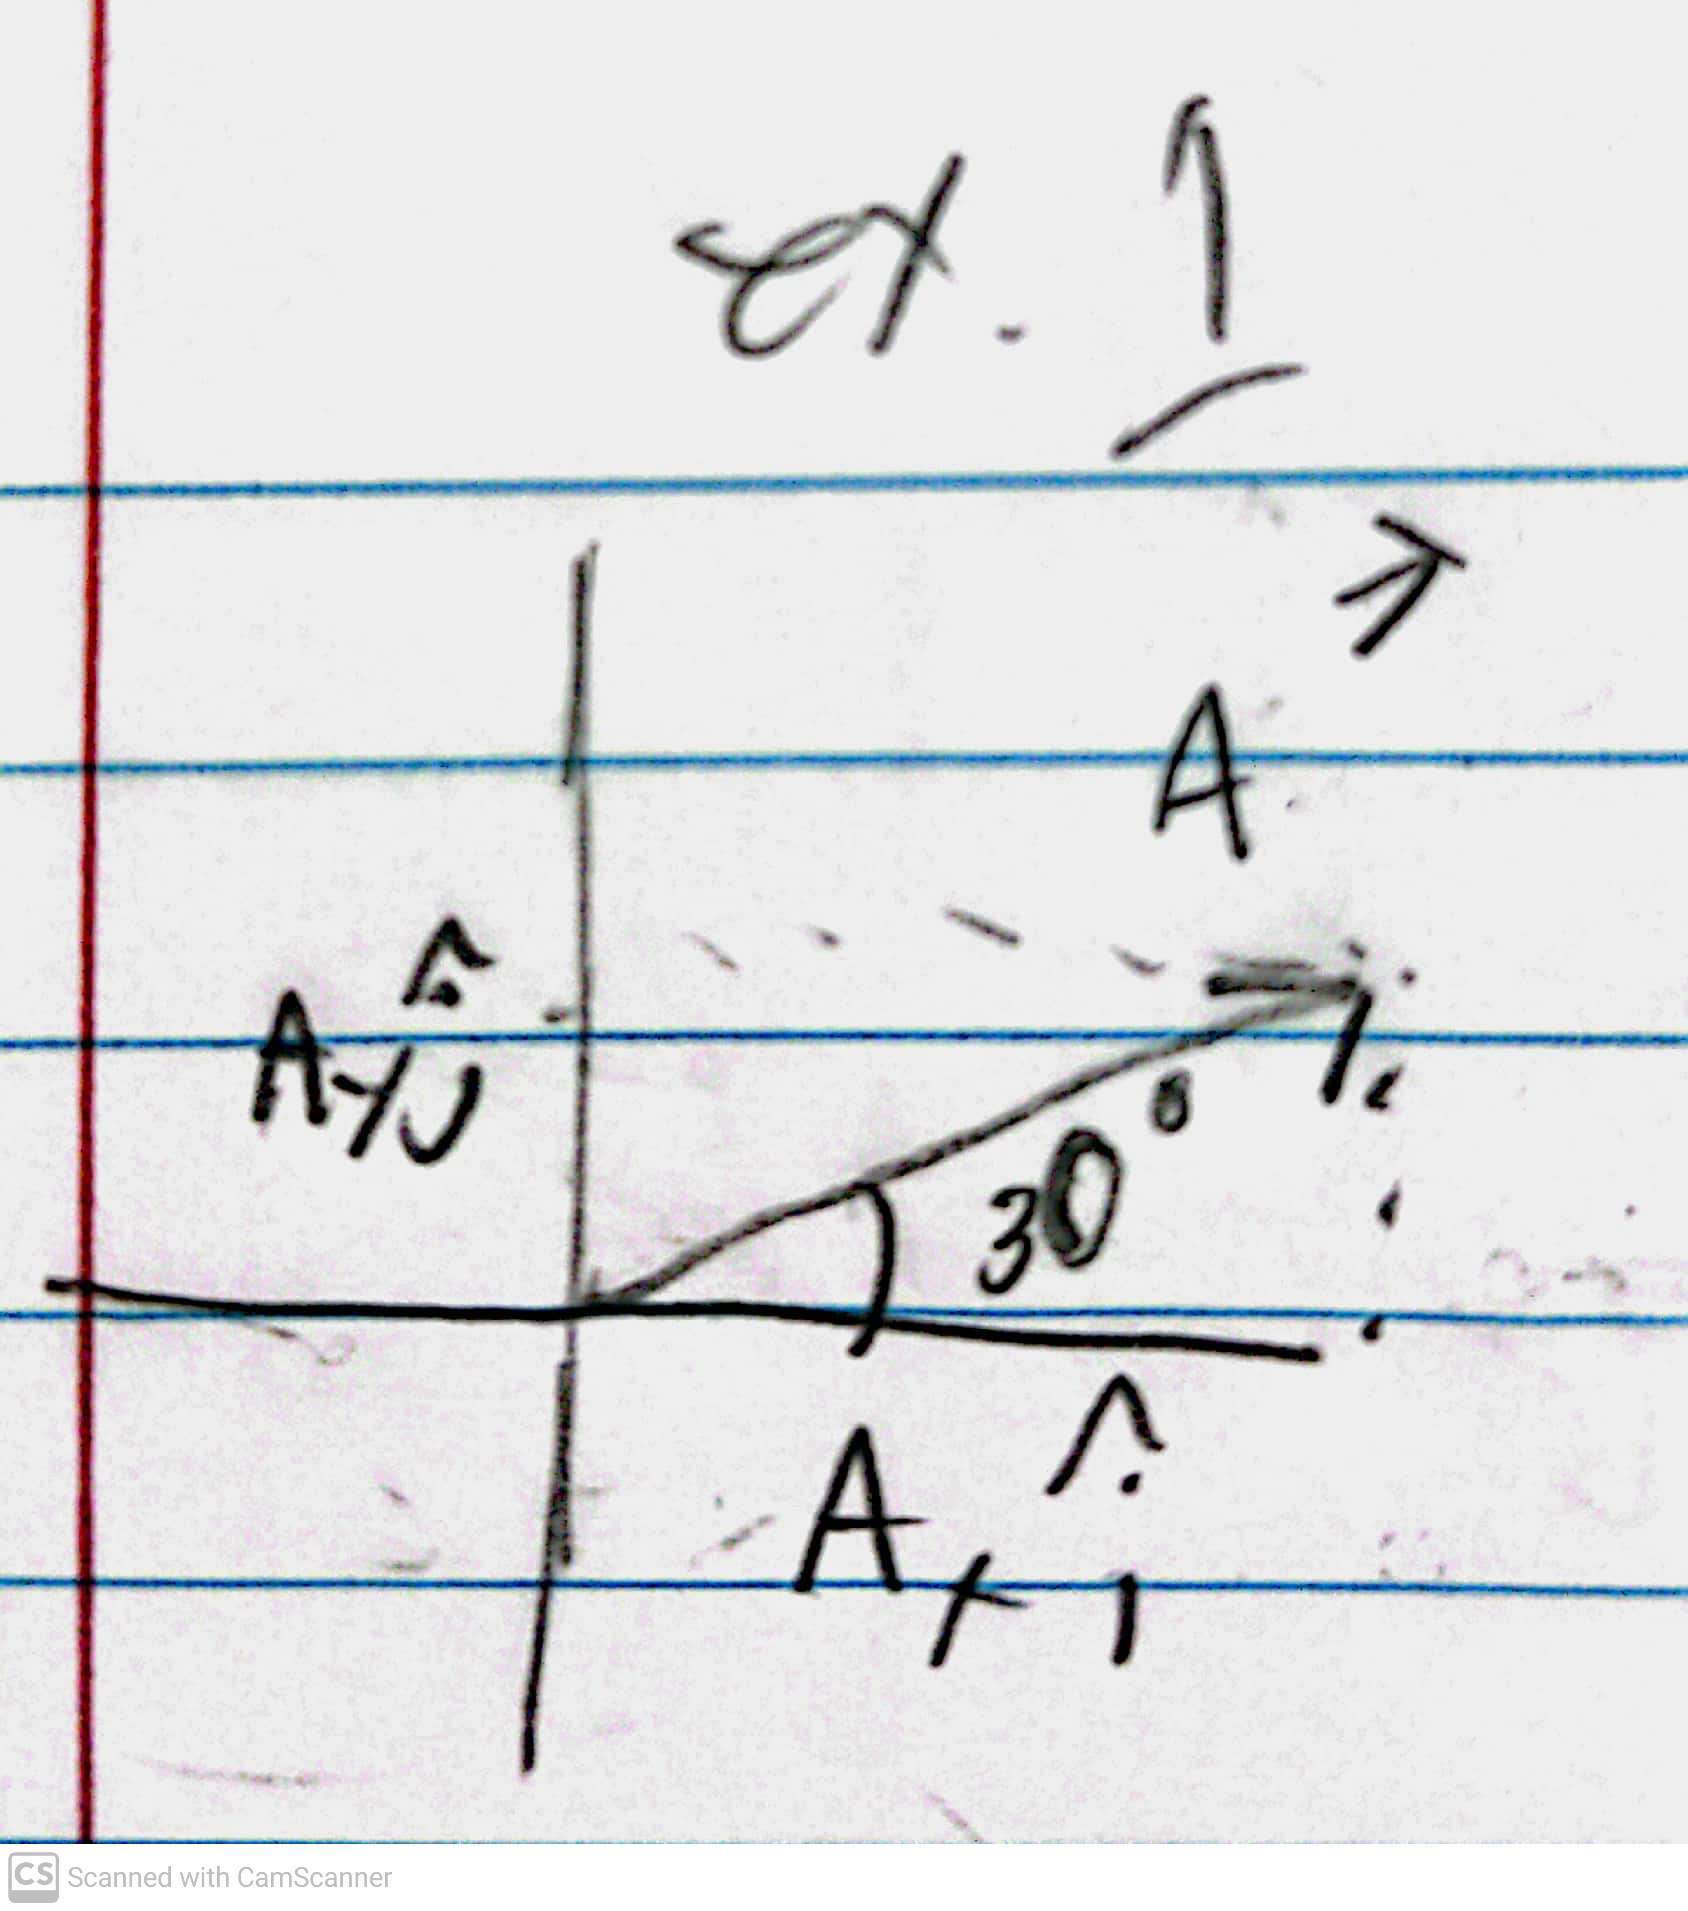 ex. 1
A→
Ayĵ
30°
Axî
CS Scanned with CamScanner